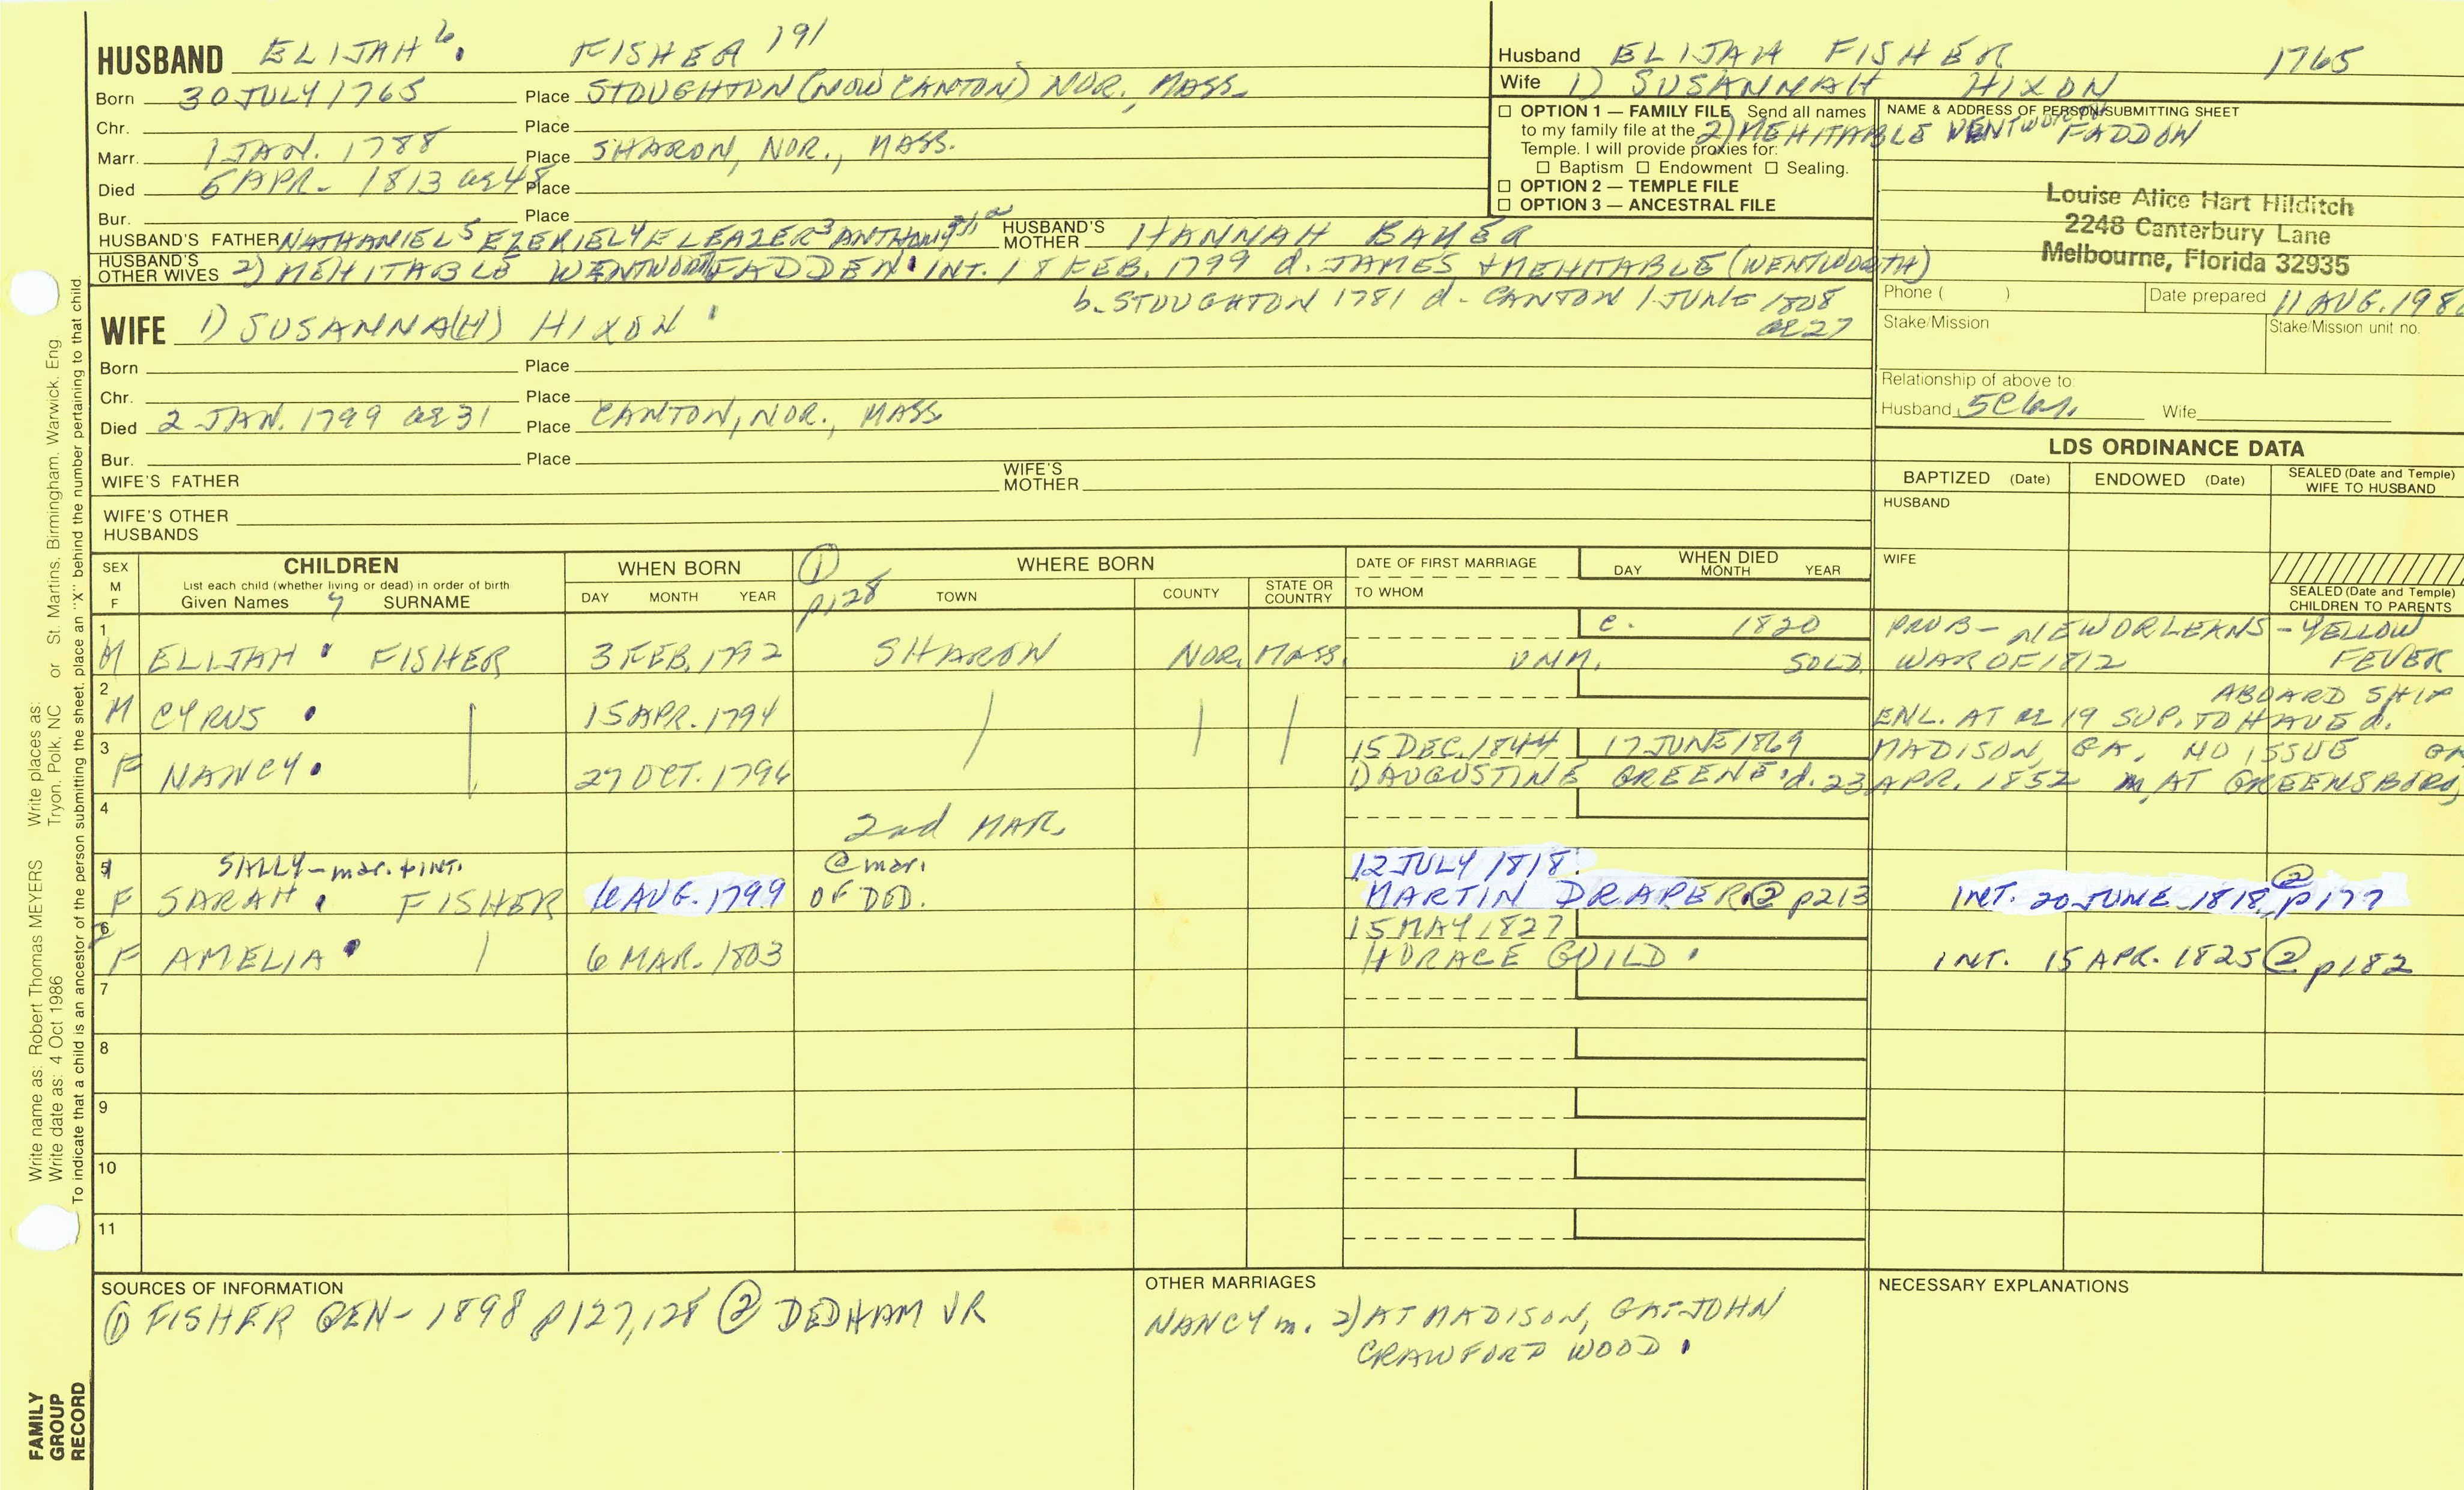 HUSBAND ELIJAH 6. FISHER 191
Born 30 JULY 1765 Place STOUGHTON (NOW CANTON) NOR., MASS.
Chr. Place
Marr. 1 JAN. 1788 Place SHARON, NOR., MASS.
Died 6 APR. 1813 ae 48 Place
Bur. Place
HUSBAND'S FATHER NATHANIEL5 EZEKIEL4 ELEAZER3 ANTHONY HUSBAND'S MOTHER HANNAH BAKER
HUSBAND'S OTHER WIVES 2) MEHITABLE WENTWORTH FADDEN INT. 18 FEB. 1799 d. JAMES + MEHITABLE (WENTWORTH)
b. STOUGHTON 1781 d. CANTON 1 JUNE 1808
ae 27
WIFE 1) SUSANNA(H) HIXON
Born Place
Chr. Place
Died 2 JAN. 1799 ae 31 Place CANTON, NOR., MASS
Bur. Place
WIFE'S FATHER WIFE'S MOTHER
WIFE'S OTHER HUSBANDS
Husband ELIJAH FISHER 1765
Wife 1) SUSANNAH HIXON
2) MEHITABLE WENTWORTH FADDON
☐ OPTION 1 — FAMILY FILE Send all names
to my family file at the
Temple. I will provide proxies for:
☐ Baptism ☐ Endowment ☐ Sealing.
☐ OPTION 2 — TEMPLE FILE
☐ OPTION 3 — ANCESTRAL FILE
NAME & ADDRESS OF PERSON SUBMITTING SHEET
Louise Alice Hart Hilditch
2248 Canterbury Lane
Melbourne, Florida 32935
Phone ( ) Date prepared 11 AUG. 198
Stake/Mission Stake/Mission unit no.
Relationship of above to:
Husband 5C Wife
LDS ORDINANCE DATA
BAPTIZED (Date) ENDOWED (Date) SEALED (Date and Temple) WIFE TO HUSBAND
HUSBAND
WIFE
SEALED (Date and Temple) CHILDREN TO PARENTS
SEX M F
CHILDREN
List each child (whether living or dead) in order of birth
Given Names 7 SURNAME
WHEN BORN
DAY MONTH YEAR
① p128
WHERE BORN
TOWN COUNTY STATE OR COUNTRY
DATE OF FIRST MARRIAGE
TO WHOM
WHEN DIED
DAY MONTH YEAR
1 c. 1820 PROB- NEW ORLEANS - YELLOW
M ELIJAH FISHER 3 FEB. 1792 SHARON NOR. MASS. UNM. SOLD. WAR OF 1812 FEVER
2 ABOARD SHIP
M CYRUS 15 APR. 1794 ENL. AT ae 19 SUP. TO HAVE d.
3 15 DEC. 1844 17 JUNE 1869 MADISON, GA. NO ISSUE
F NANCY 27 OCT. 1796 1) AUGUSTINE GREENE d. 23 APR. 1852 m. AT GREENSBORO,
4 2nd MAR.
5 SALLY - mar. + INT. @ mar. 12 JULY 1818
F SARAH FISHER 6 AUG. 1799 OF DED. MARTIN DRAPER ② p213 INT. 20 JUNE 1818 ② p177
6 15 MAY 1827
F AMELIA 6 MAR. 1803 HORACE GUILD INT. 15 APR. 1825 ② p182
7
8
9
10
11
SOURCES OF INFORMATION
① FISHER GEN - 1898 p127,128 ② DEDHAM VR
OTHER MARRIAGES
NANCY m. 2) AT MADISON, GA - JOHN
CRAWFORD WOOD
NECESSARY EXPLANATIONS
Write name as: Robert Thomas MEYERS Write places as: Tryon, Polk, NC or St. Martins, Birmingham, Warwick, Eng
Write date as: 4 Oct 1986
To indicate that a child is an ancestor of the person submitting the sheet, place an "X" behind the number pertaining to that child.
FAMILY
GROUP
RECORD